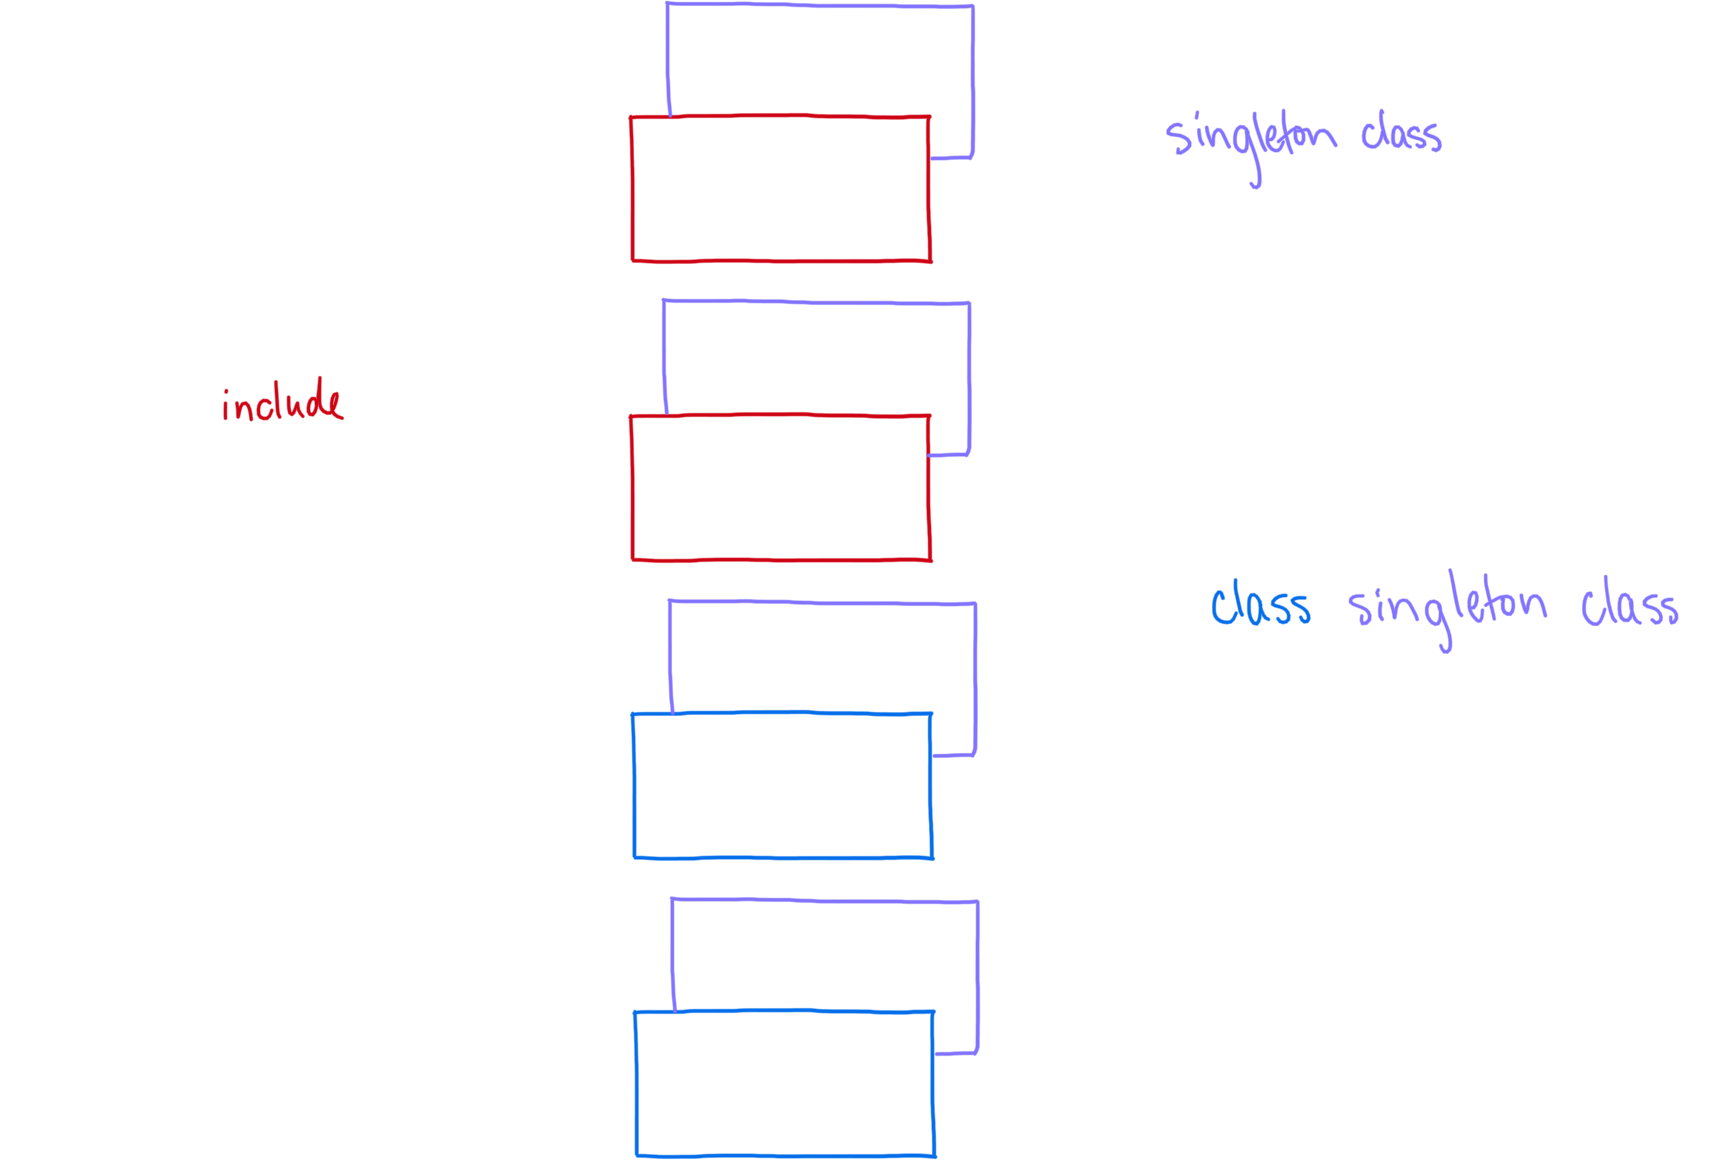 singleton class
include
class singleton class